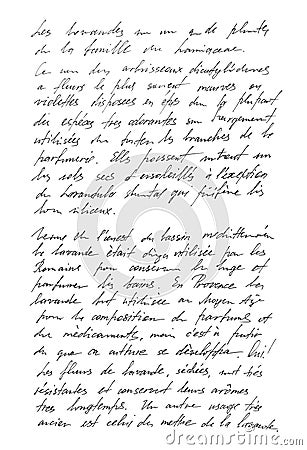 Les lavandes sont un genre de plantes
de la famille des lamiaceae.
Ce sont des arbrisseaux dicotylédones
à fleurs le plus souvent mauves ou
violettes disposées en épis dont la plupart
des espèces très odorantes sont largement
utilisées dans toutes les branches de la
parfumerie. Elles poussent surtout sur
les sols secs et ensoleillés à l'exception
de Lavandula stoechas qui préfère les
sols siliceux.
Venue de l'ouest du bassin méditerranéen
la lavande était déjà utilisée par les
Romains pour conserver le linge et
parfumer les bains. En Provence la
lavande fut utilisée au Moyen Âge
pour la composition de parfums et
de médicaments, mais c'est à partir
du que sa culture se développa. Oui!
Les fleurs de lavande, séchées, sont très
résistantes et conservent leurs arômes
très longtemps. Un autre usage très
ancien est celui de mettre de la lavande
dreamstime
dreamstime.com